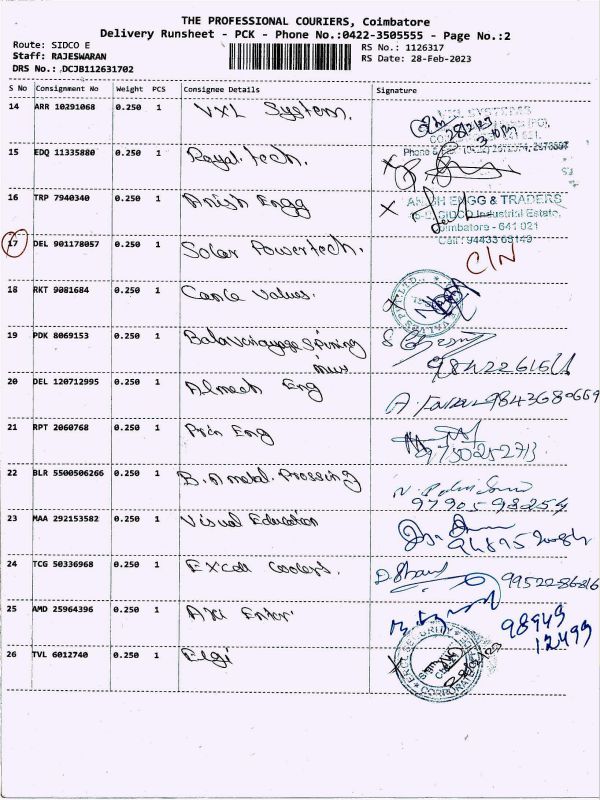 THE PROFESSIONAL COURIERS, Coimbatore
Delivery Runsheet - PCK - Phone No.:0422-3505555 - Page No.:2
Route: SIDCO E
Staff: RAJESWARAN
DRS No.: DCJB112631702
RS No.: 1126317
RS Date: 28-Feb-2023
S No Consignment No Weight PCS Consignee Details Signature
14 ARR 10291068 0.250 1 VXL System.
28/2/23
3.10pm
15 EDQ 11335880 0.250 1 Royal tech.
16 TRP 7940340 0.250 1 Anish Engg
ANISH ENGG & TRADERS
SIDCO Industrial Estate,
Coimbatore - 641 021
Cell : 94433 65149
17 DEL 901178057 0.250 1 Solar Powertech.
C/N
18 RKT 9081684 0.250 1 Values.
19 PDK 8069153 0.250 1 Balavinayaga Spining
mill
20 DEL 120712995 0.250 1 Almech Eng
9843680669
21 RPT 2060768 0.250 1 Eng
9750252713
22 BLR 5500506266 0.250 1 B.A metal. Prossing
9790598254
23 MAA 292153582 0.250 1 Visual Education
24 TCG 50336968 0.250 1 Excell Coolers.
9952286216
25 AMD 25964396 0.250 1 Axi Enter.
98949
12499
26 TVL 6012740 0.250 1 Elgi